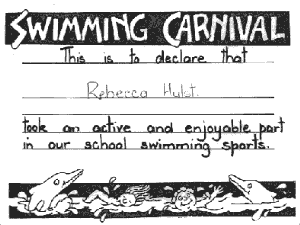 SWIMMING CARNIVAL
This is to declare that
Rebecca Hulst.
took an active and enjoyable part
in our school swimming sports.